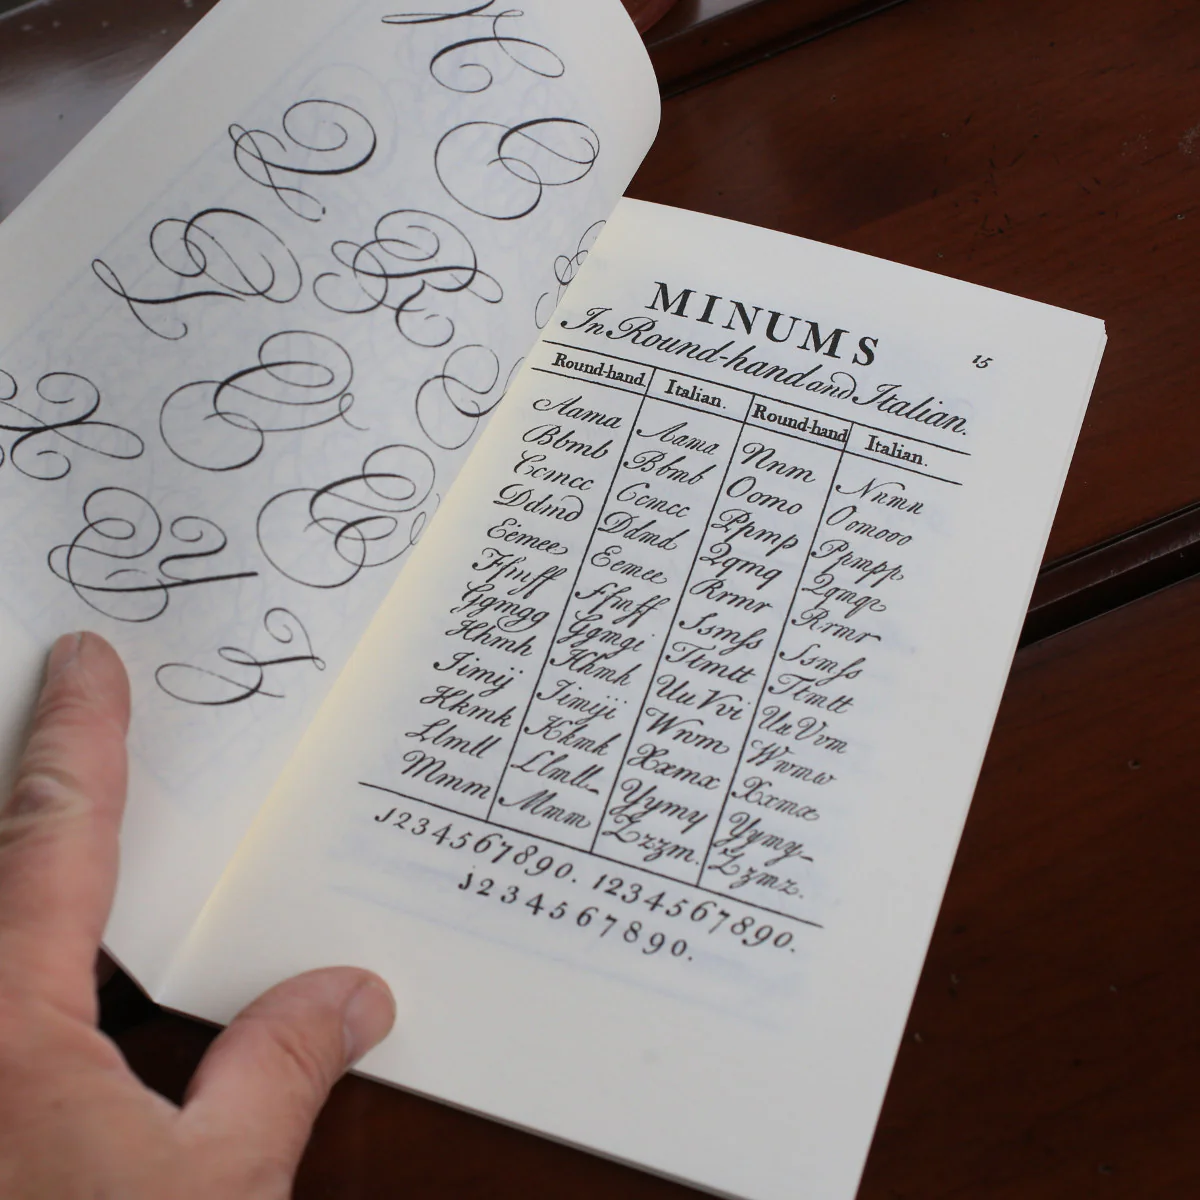 MINUMS
15
In Round-hand and Italian.
Round-hand. Italian. Round-hand Italian.
Aama Aama Nnm Nnmn
Bbmb Bbmb Oomo Oomooo
Ccmcc Ccmcc Ppmp Ppmpp
Ddmd Ddmd Qqmq Qqmqr
Eemee Eemee Rrmr Rrmr
Ffmff Ffmff Ssmſs Ssmſs
Ggmgg Ggmgi Ttmtt Ttmtt
Hhmh Hhmh Uu Vvi Uu Vvm
Iimij Iimiji Wwm Wwmw
Kkmk Kkmk Xxmx Xxmx
Llmll Llmll Yymy Yymy
Mmm Mmm Zzzm. Zzmz.
1234567890. 1234567890.
1234567890.